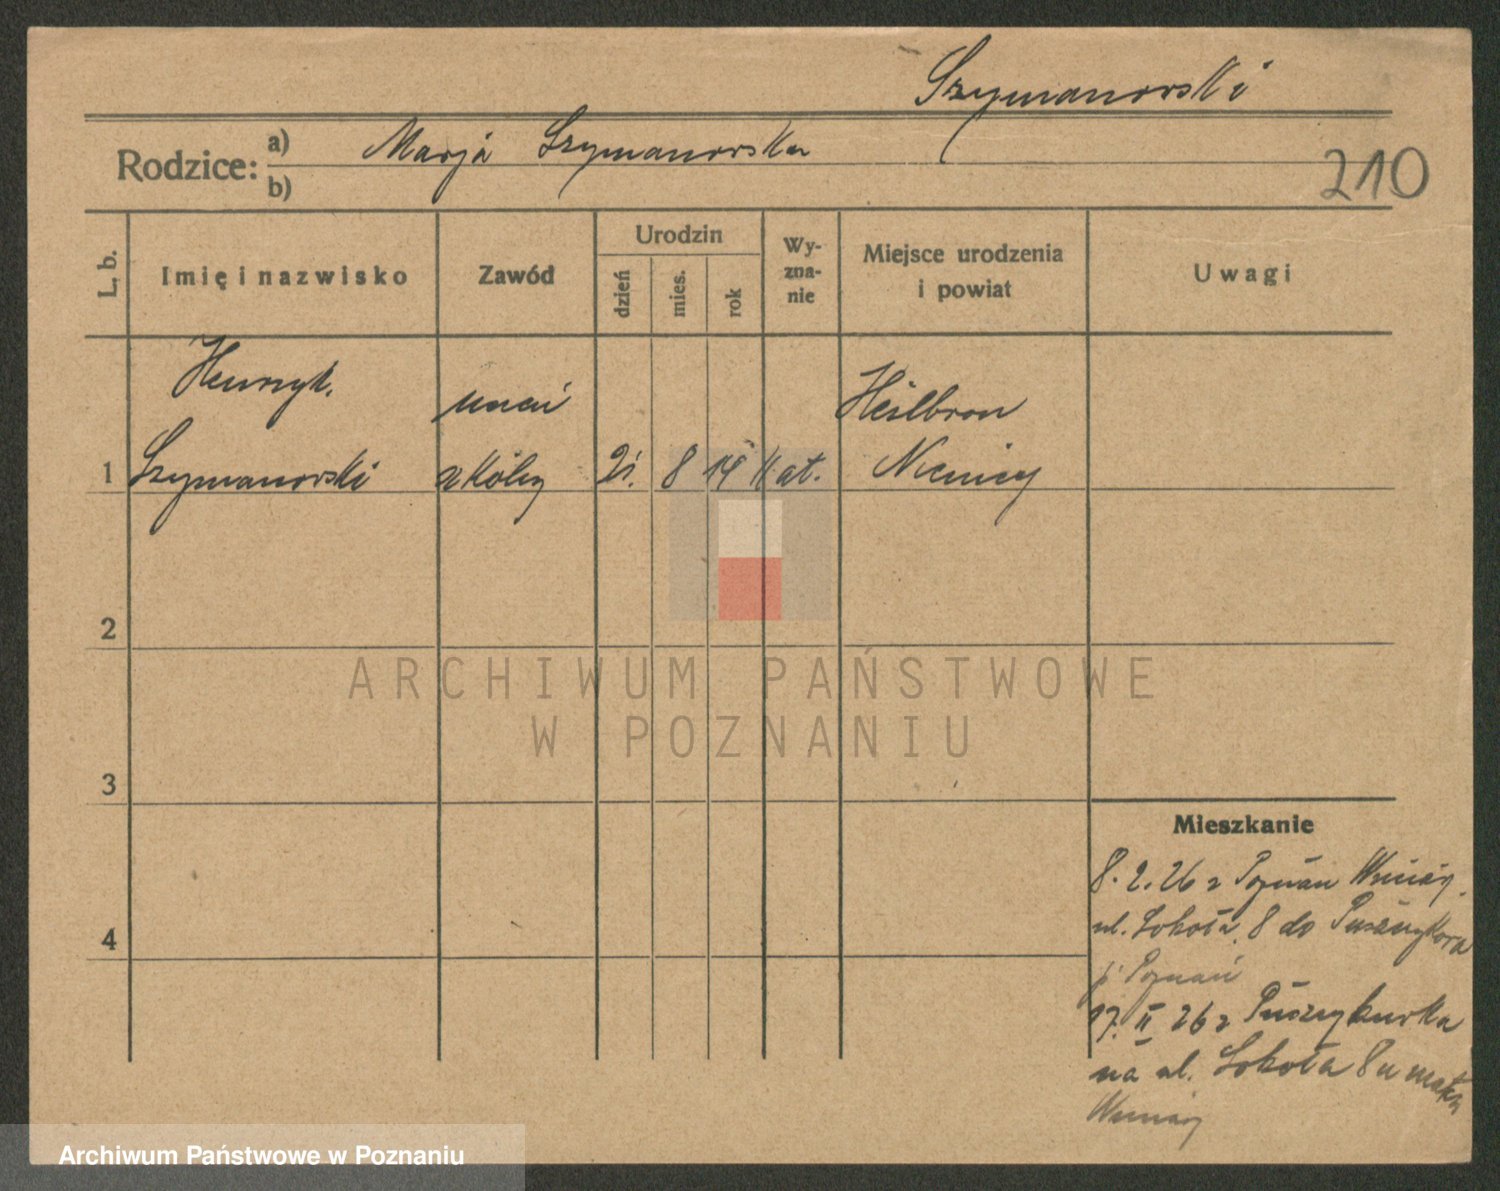 Szymanowski
Rodzice: a) Marja Szymanowska
b)
210
L. b.
Imię i nazwisko
Zawód
Urodzin
dzień
mies.
rok
Wy-
zna-
nie
Miejsce urodzenia
i powiat
Uwagi
Henryk.
Szymanowski
uczeń
szkólny
21.
8
14
kat.
Heilbron
Niemcy
1
2
3
4
ARCHIWUM PAŃSTWOWE
W POZNANIU
Mieszkanie
8. 2. 26 z Poznań Winiary
ul. Sokoła 8 do Puszczykowa
p. Poznań
17. II 26 z Puszczykowka
na ul. Sokoła 8 u matki
Winiary
Archiwum Państwowe w Poznaniu